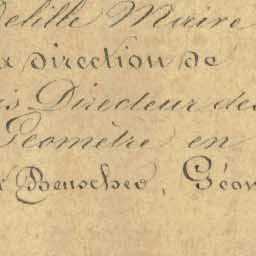 Delille Maire
direction de
Directeur des
Géomètre en
Beuscher, Géo